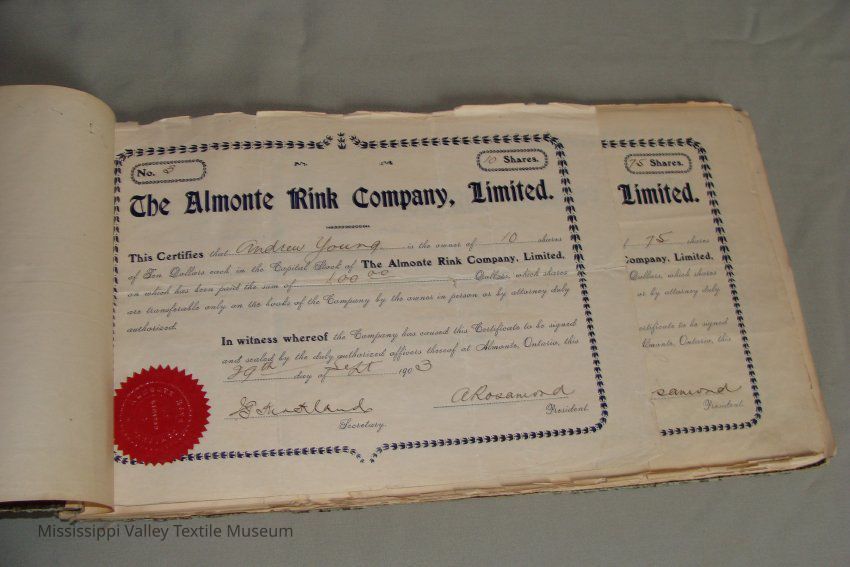 No. 8
10 Shares.
The Almonte Rink Company, Limited.
This Certifies that Andrew Young is the owner of 10 shares
of Ten Dollars each in the Capital Stock of The Almonte Rink Company, Limited.
on which has been paid the sum of 100 00 Dollars, which shares
are transferable only on the books of the Company by the owner in person or by attorney duly
authorized.
In witness whereof the Company has caused this Certificate to be signed
and sealed by the duly authorized officers thereof at Almonte, Ontario, this
29th day of Sept 1903
Secretary.
ARosamond
President.
75 Shares.
Limited.
75 shares
Company, Limited.
Dollars, which shares
or by attorney duly
ertificate to be signed
Ontario, this
samond
President.
Mississippi Valley Textile Museum